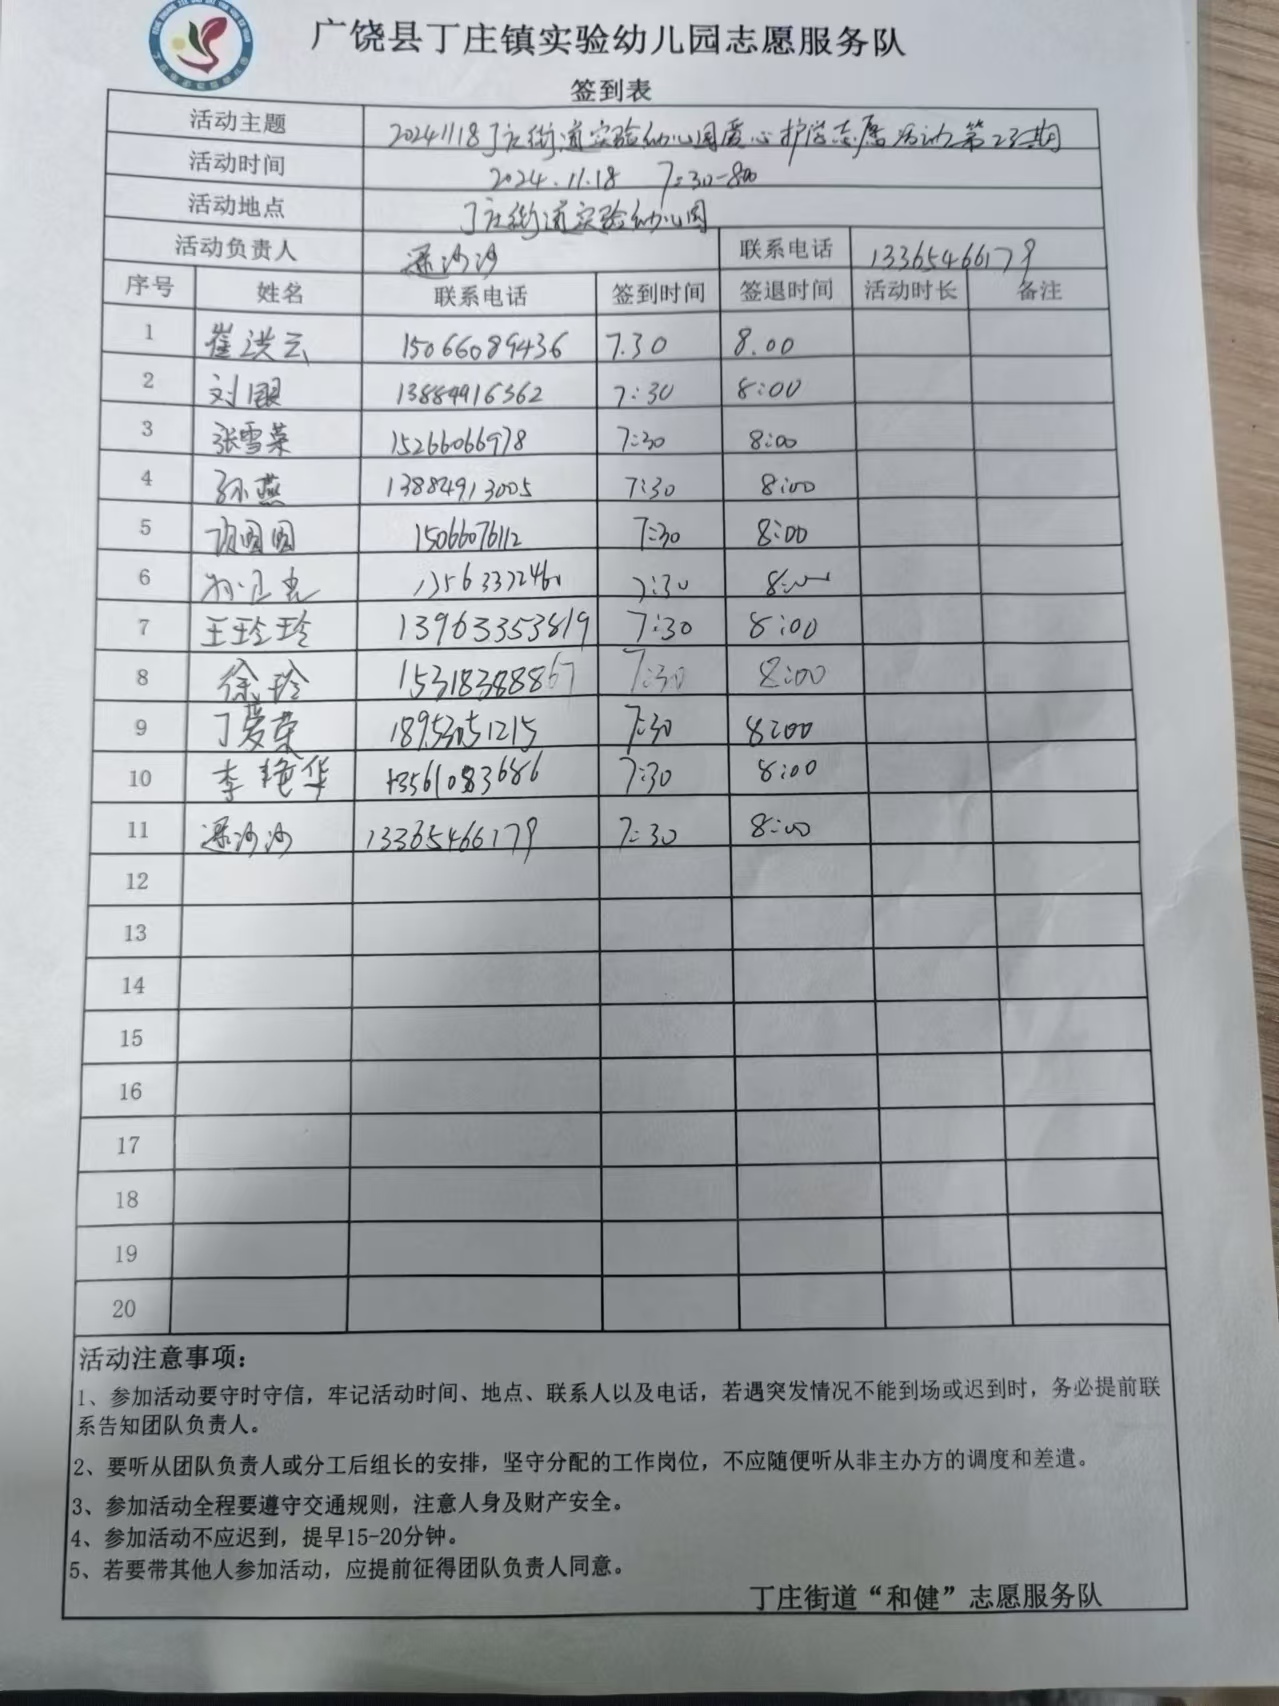 广饶县丁庄镇实验幼儿园志愿服务队
签到表
活动主题 20241118丁庄街道实验幼儿园爱心护学志愿活动第23期
活动时间 2024.11.18 7:30-8:00
活动地点 丁庄街道实验幼儿园
活动负责人 沙沙 联系电话 13365466179
序号 姓名 联系电话 签到时间 签退时间 活动时长 备注
1 崔洪云 15066089436 7.30 8.00
2 刘银 13884916362 7:30 8:00
3 张雪荣 15266066978 7:30 8:00
4 孙燕 13884913005 7:30 8:00
5 圆圆 15066076112 7:30 8:00
6 7:30 8:00
7 王玲玲 13963353819 7:30 8:00
8 徐玲 15318388867 7:30 8:00
9 丁爱荣 18953051215 7:30 8:00
10 李艳华 13561083686 7:30 8:00
11 沙沙 13365466179 7:30 8:00
12
13
14
15
16
17
18
19
20
活动注意事项：
1、参加活动要守时守信，牢记活动时间、地点、联系人以及电话，若遇突发情况不能到场或迟到时，务必提前联
系告知团队负责人。
2、要听从团队负责人或分工后组长的安排，坚守分配的工作岗位，不应随便听从非主办方的调度和差遣。
3、参加活动全程要遵守交通规则，注意人身及财产安全。
4、参加活动不应迟到，提早15-20分钟。
5、若要带其他人参加活动，应提前征得团队负责人同意。
丁庄街道“和健”志愿服务队